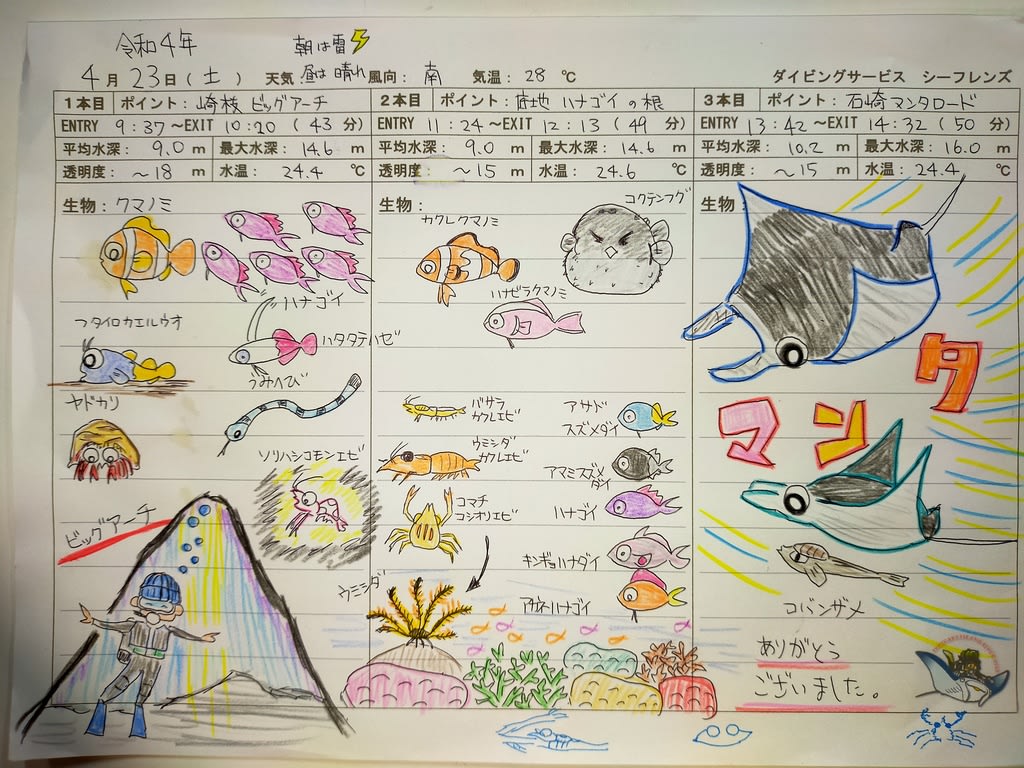 令和4年
朝は雷
4月23日(土) 天気 昼は晴れ 風向: 南 気温: 28 ℃ ダイビングサービス シーフレンズ
1本目 ポイント: 崎枝 ビッグアーチ
ENTRY 9:37~EXIT 10:20 (43分)
平均水深: 9.0 m 最大水深: 14.6 m
透明度: ~18 m 水温: 24.4 ℃
生物: クマノミ
ハナゴイ
フタイロカエルウオ
ハタタテハゼ
うみへび
ヤドカリ
ソリハシコモンエビ
ビッグアーチ
2本目 ポイント: 底地 ハナゴイの根
ENTRY 11:24~EXIT 12:13 (49分)
平均水深: 9.0 m 最大水深: 14.6 m
透明度: ~15 m 水温: 24.6 ℃
生物:
コクテンフグ
カクレクマノミ
ハナビラクマノミ
バサラ
カクレエビ
アサド
スズメダイ
ウミシダ
カクレエビ
アマミスズメ
ダイ
コマチ
コシオリエビ
ハナゴイ
キンギョハナダイ
ウミシダ
アカネハナゴイ
3本目 ポイント: 石崎マンタロード
ENTRY 13:42~EXIT 14:32 (50分)
平均水深: 10.2 m 最大水深: 16.0 m
透明度: ~15 m 水温: 24.4 ℃
生物
マンタ
コバンザメ
ありがとう
ございました。